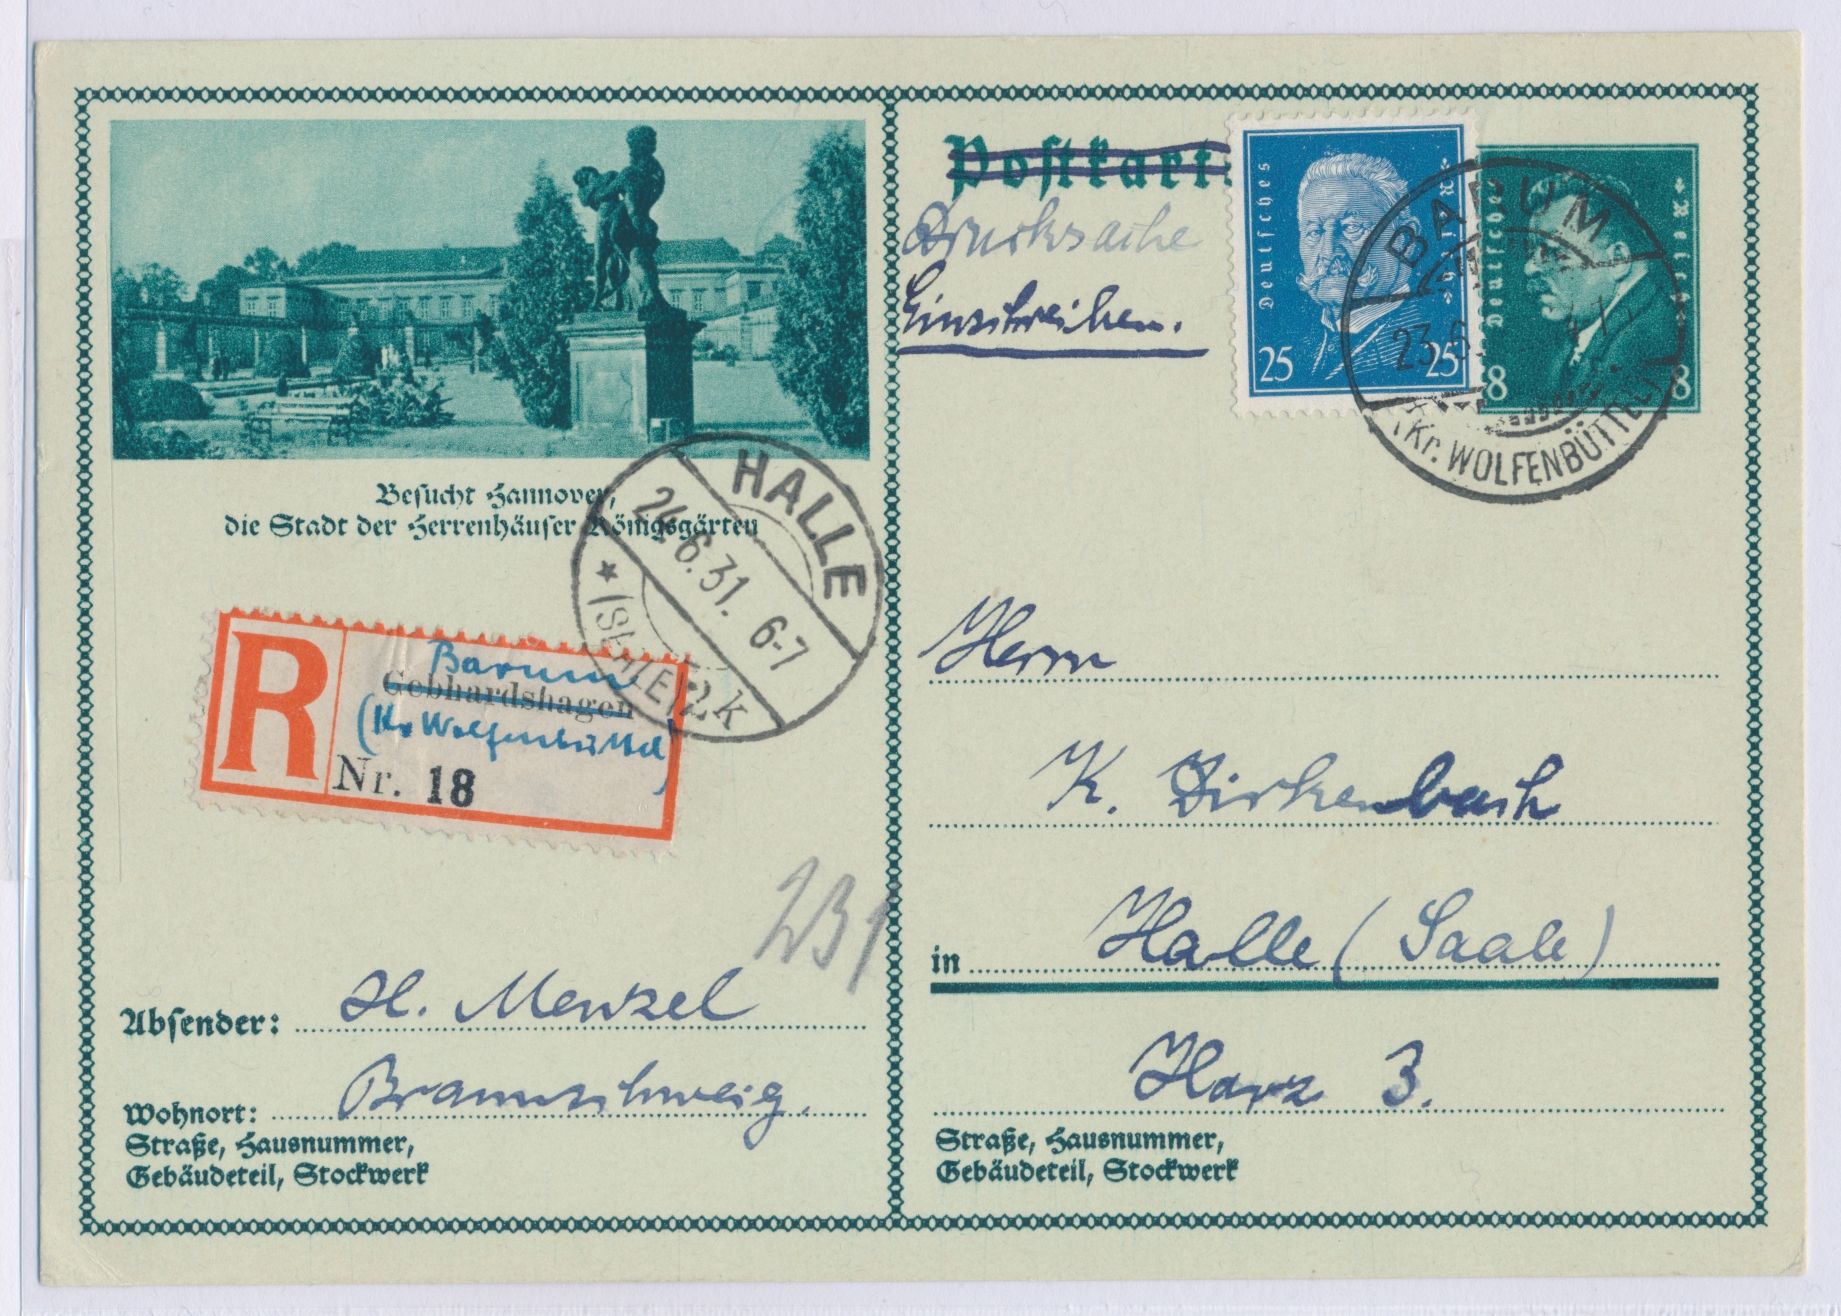 Besucht Hannover,
die Stadt der Herrenhäuser Königsgärten
HALLE
24.6.31. 6-7
* (SAALE) 2 k
R
Barum
Gebhardshagen
(Kr Wolfenbüttel)
Nr. 18
231
Absender: H. Menzel
Wohnort: Braunschweig.
Straße, Hausnummer,
Gebäudeteil, Stockwerk
Postkarte
Drucksache
Einschreiben.
Deutsches Reich
25 25
Deutsches Reich
8 8
BARUM
23.6.
(Kr. WOLFENBÜTTEL)
Herrn
K. Birkenbach
in Halle (Saale)
Harz 3.
Straße, Hausnummer,
Gebäudeteil, Stockwerk